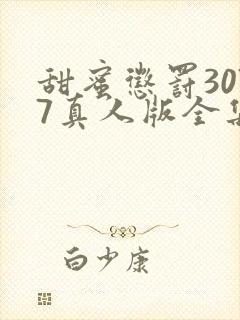 甜蜜懲罰30
7真人版全集
白少康